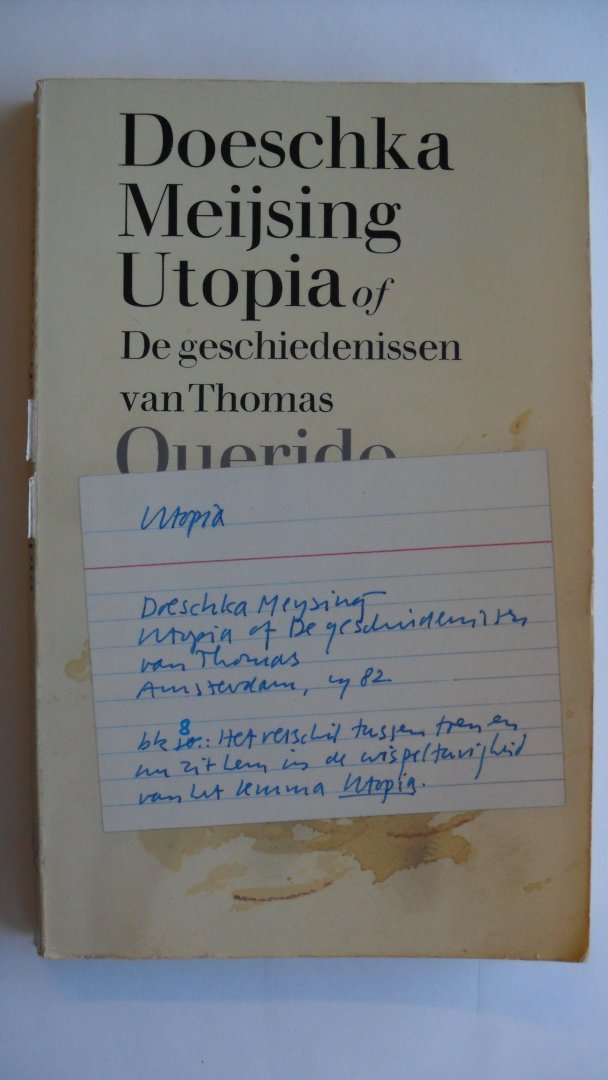 Doeschka
Meijsing
Utopia of
De geschiedenissen
van Thomas
Querido
Utopia
Doeschka Meysing
Utopia of De geschiedenissen
van Thomas
Amsterdam, 1982
8
blz : Het verschil tussen toen en
nu zit hem in de wispelturigheid
van het lemma Utopia.